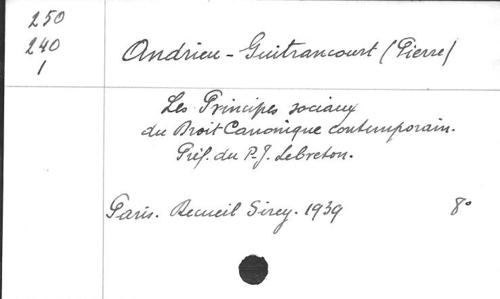 250
240
1
Andrieu-Guitrancourt (Pierre)
Les Principes sociaux
du Droit Canonique contemporain.
Préf. du P. J. Lebreton.
Paris. Recueil Sirey. 1939 8°